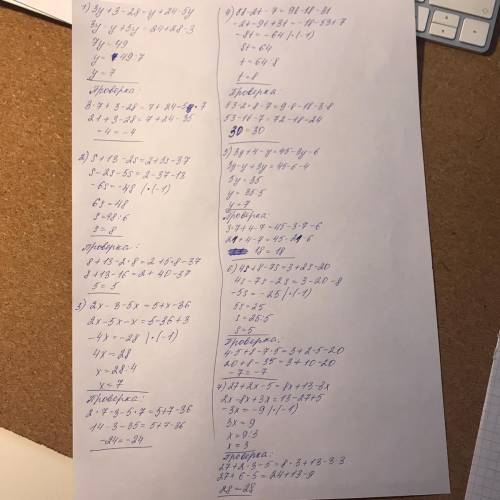 1) 3y+3-28=y+24-5y
3y-y+5y=24+28-3
7y=49
y=49:7
y=7
Проверка:
3·7+3-28=7+24-5·7
21+3-28=7+24-35
-4=-4
2) s+13-2s=2+5s-37
s-2s-5s=2-37-13
-6s=-48 |·(-1)
6s=48
s=48:6
s=8
Проверка:
8+13-2·8=2+5·8-37
8+13-16=2+40-37
5=5
3) 2x-3-5x=5+x-36
2x-5x-x=5-36+3
-4x=-28 |·(-1)
4x=28
x=28:4
x=7
Проверка:
2·7-3-5·7=5+7-36
14-3-35=5+7-36
-24=-24
-2t-9t+3t=-18-53+7
-8t=-64 |·(-1)
8t=64
t=64:8
t=8
Проверка:
53-2·8-7=9·8-18-3·8
53-16-7=72-18-24
30=30
5) 3y+4-y=45-3y-6
3y-y+3y=45-6-4
5y=35
y=35:5
y=7
Проверка:
3·7+4-7=45-3·7-6
21+4-7=45-21-6
18=18
6) 4s+8-7s=3+2s-20
4s-7s-2s=3-20-8
-5s=-25 |·(-1)
5s=25
s=25:5
s=5
Проверка:
4·5+8-7·5=3+2·5-20
20+8-35=3+10-20
-7=-7
7) 27+2x-5=8x+13-3x
2x-8x+3x=13-27+5
-3x=-9 |·(-1)
3x=9
x=9:3
x=3
Проверка:
27+2·3-5=8·3+13-3·3
27+6-5=24+13-9
28=28